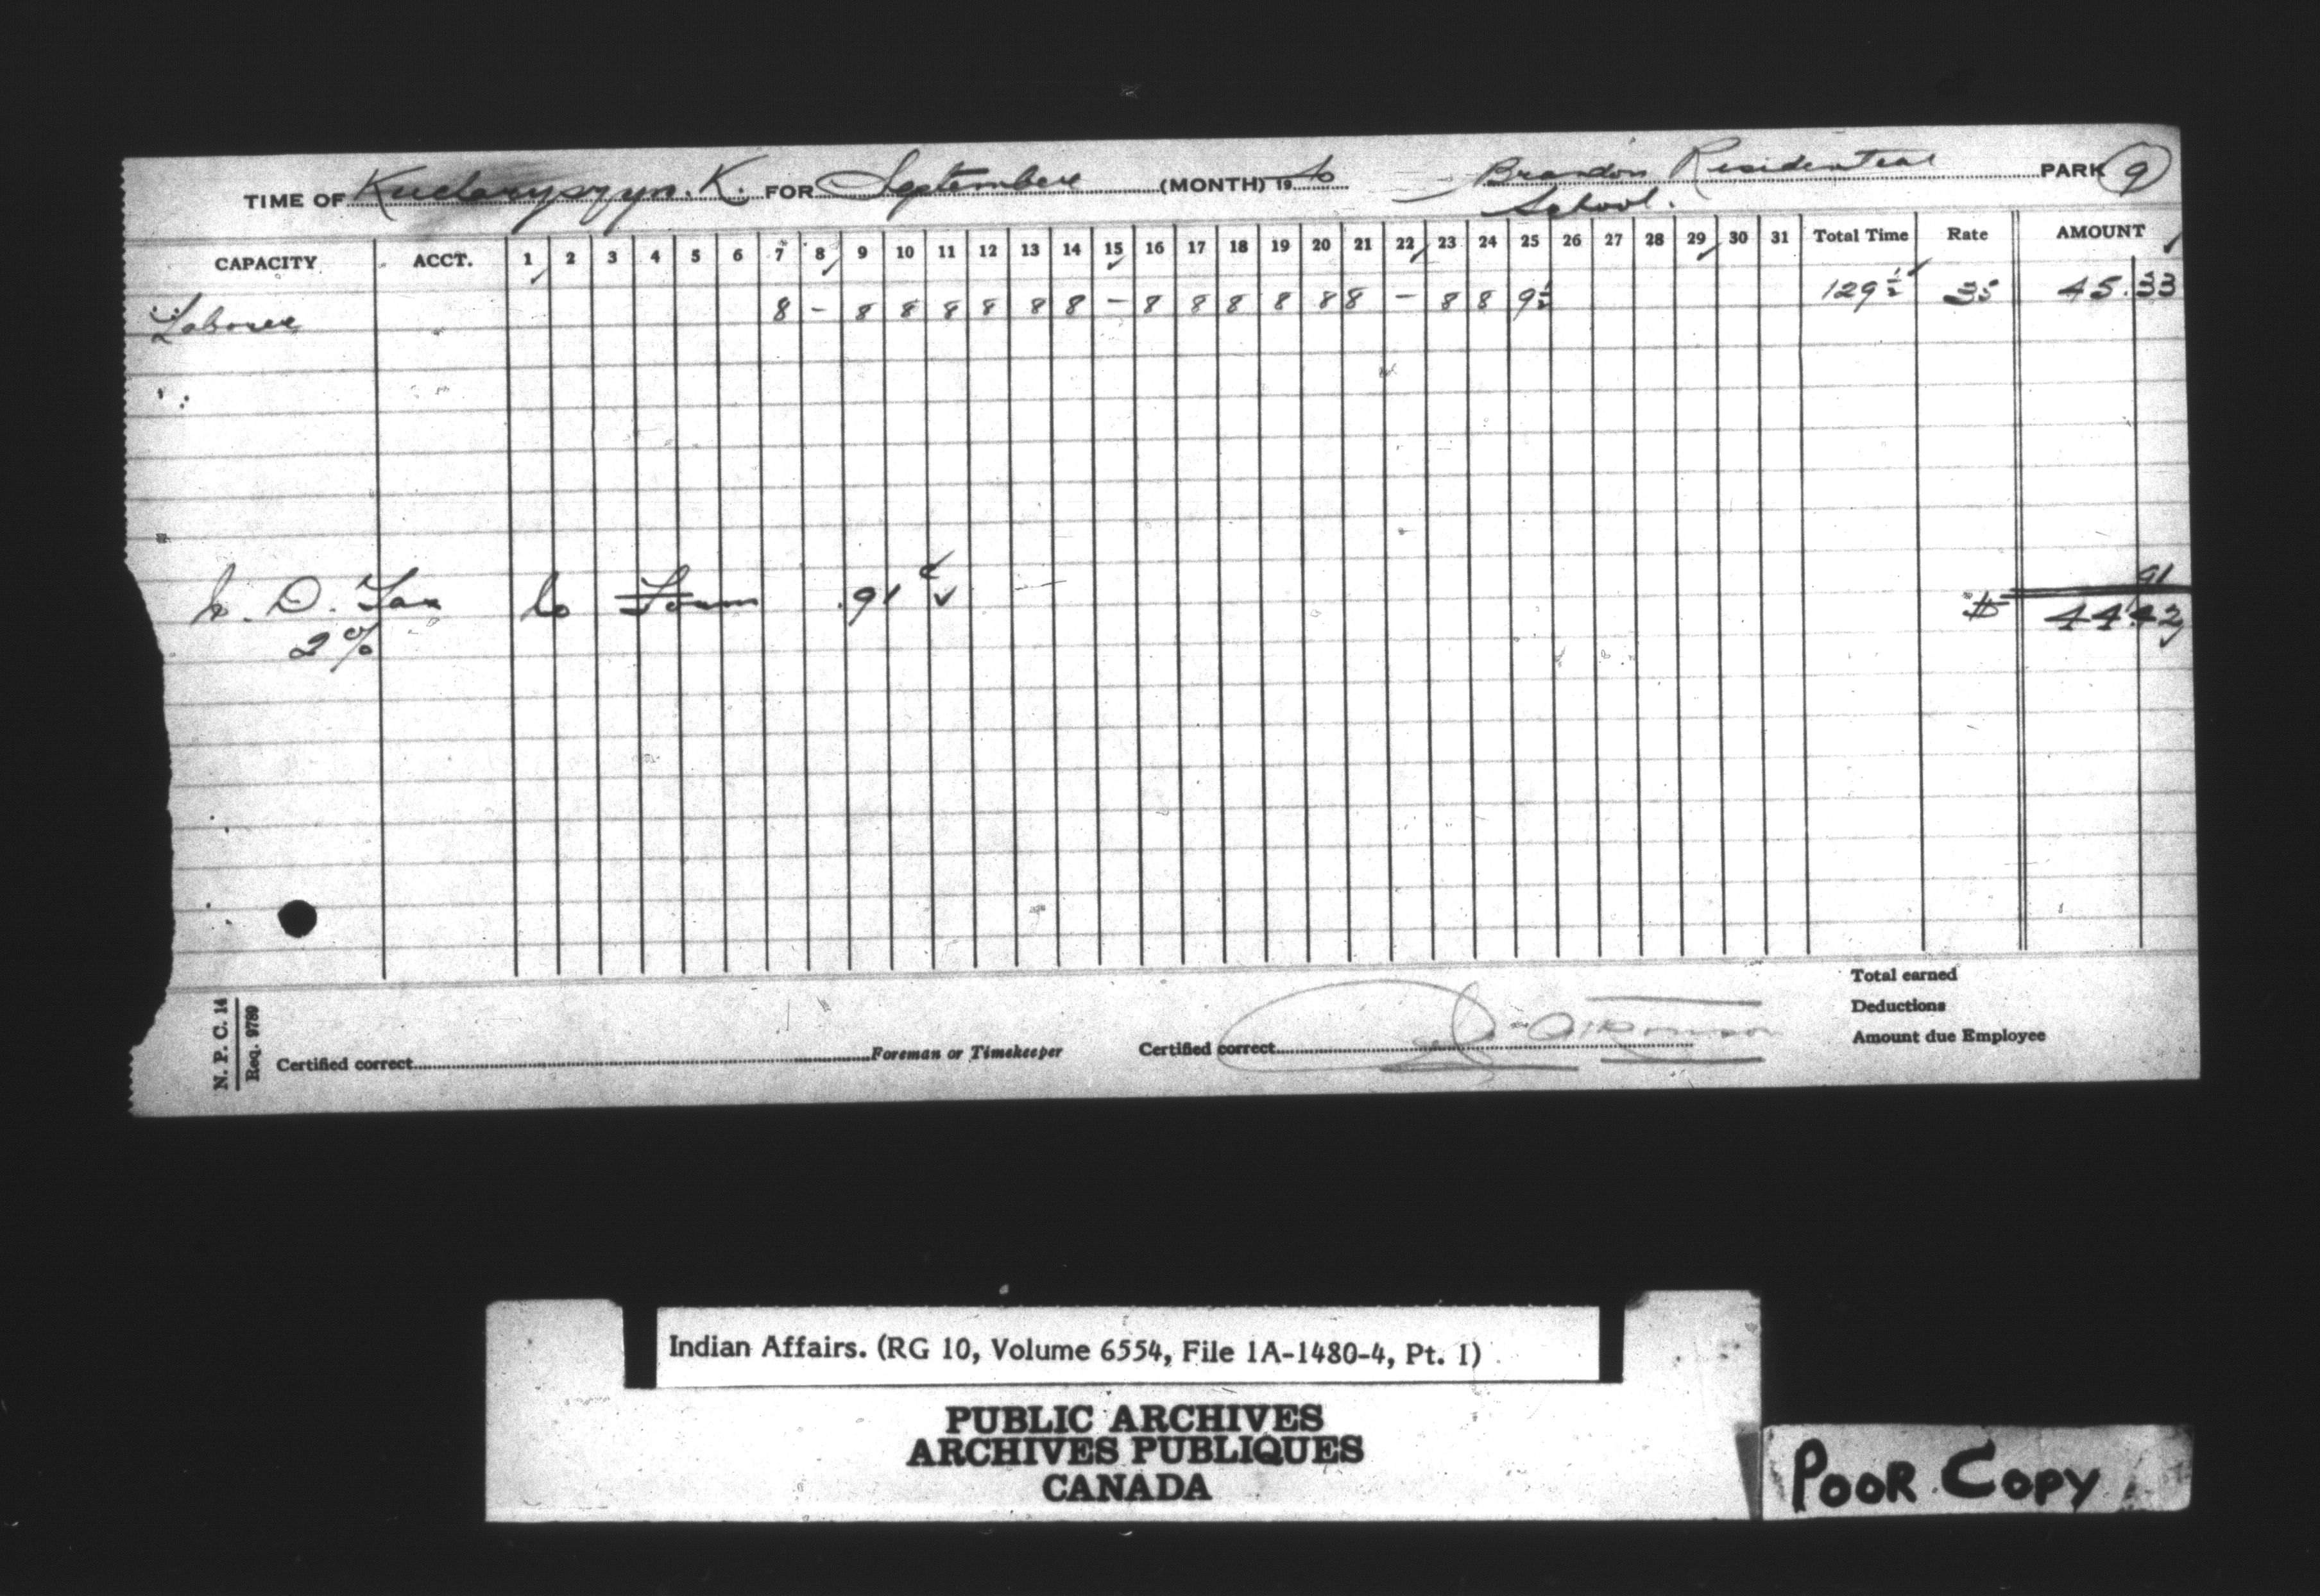 TIME OF Kucharyszyn. K. FOR September (MONTH) 19 40 Brandon Residential PARK 9
School.
CAPACITY ACCT. 1 2 3 4 5 6 7 8 9 10 11 12 13 14 15 16 17 18 19 20 21 22 23 24 25 26 27 28 29 30 31 Total Time Rate AMOUNT
Laborer 8 - 8 8 8 8 8 8 - 8 8 8 8 8 8 - 8 8 9½ 129½ 35 45.33
N. D. Tax .91 ¢ 91
2% $ 44.42
Total earned
Deductions
Amount due Employee
Certified correct Foreman or Timekeeper Certified correct
N. P. C. 14
Req. 9789
Indian Affairs. (RG 10, Volume 6554, File 1A-1480-4, Pt. 1)
PUBLIC ARCHIVES
ARCHIVES PUBLIQUES
CANADA
POOR COPY